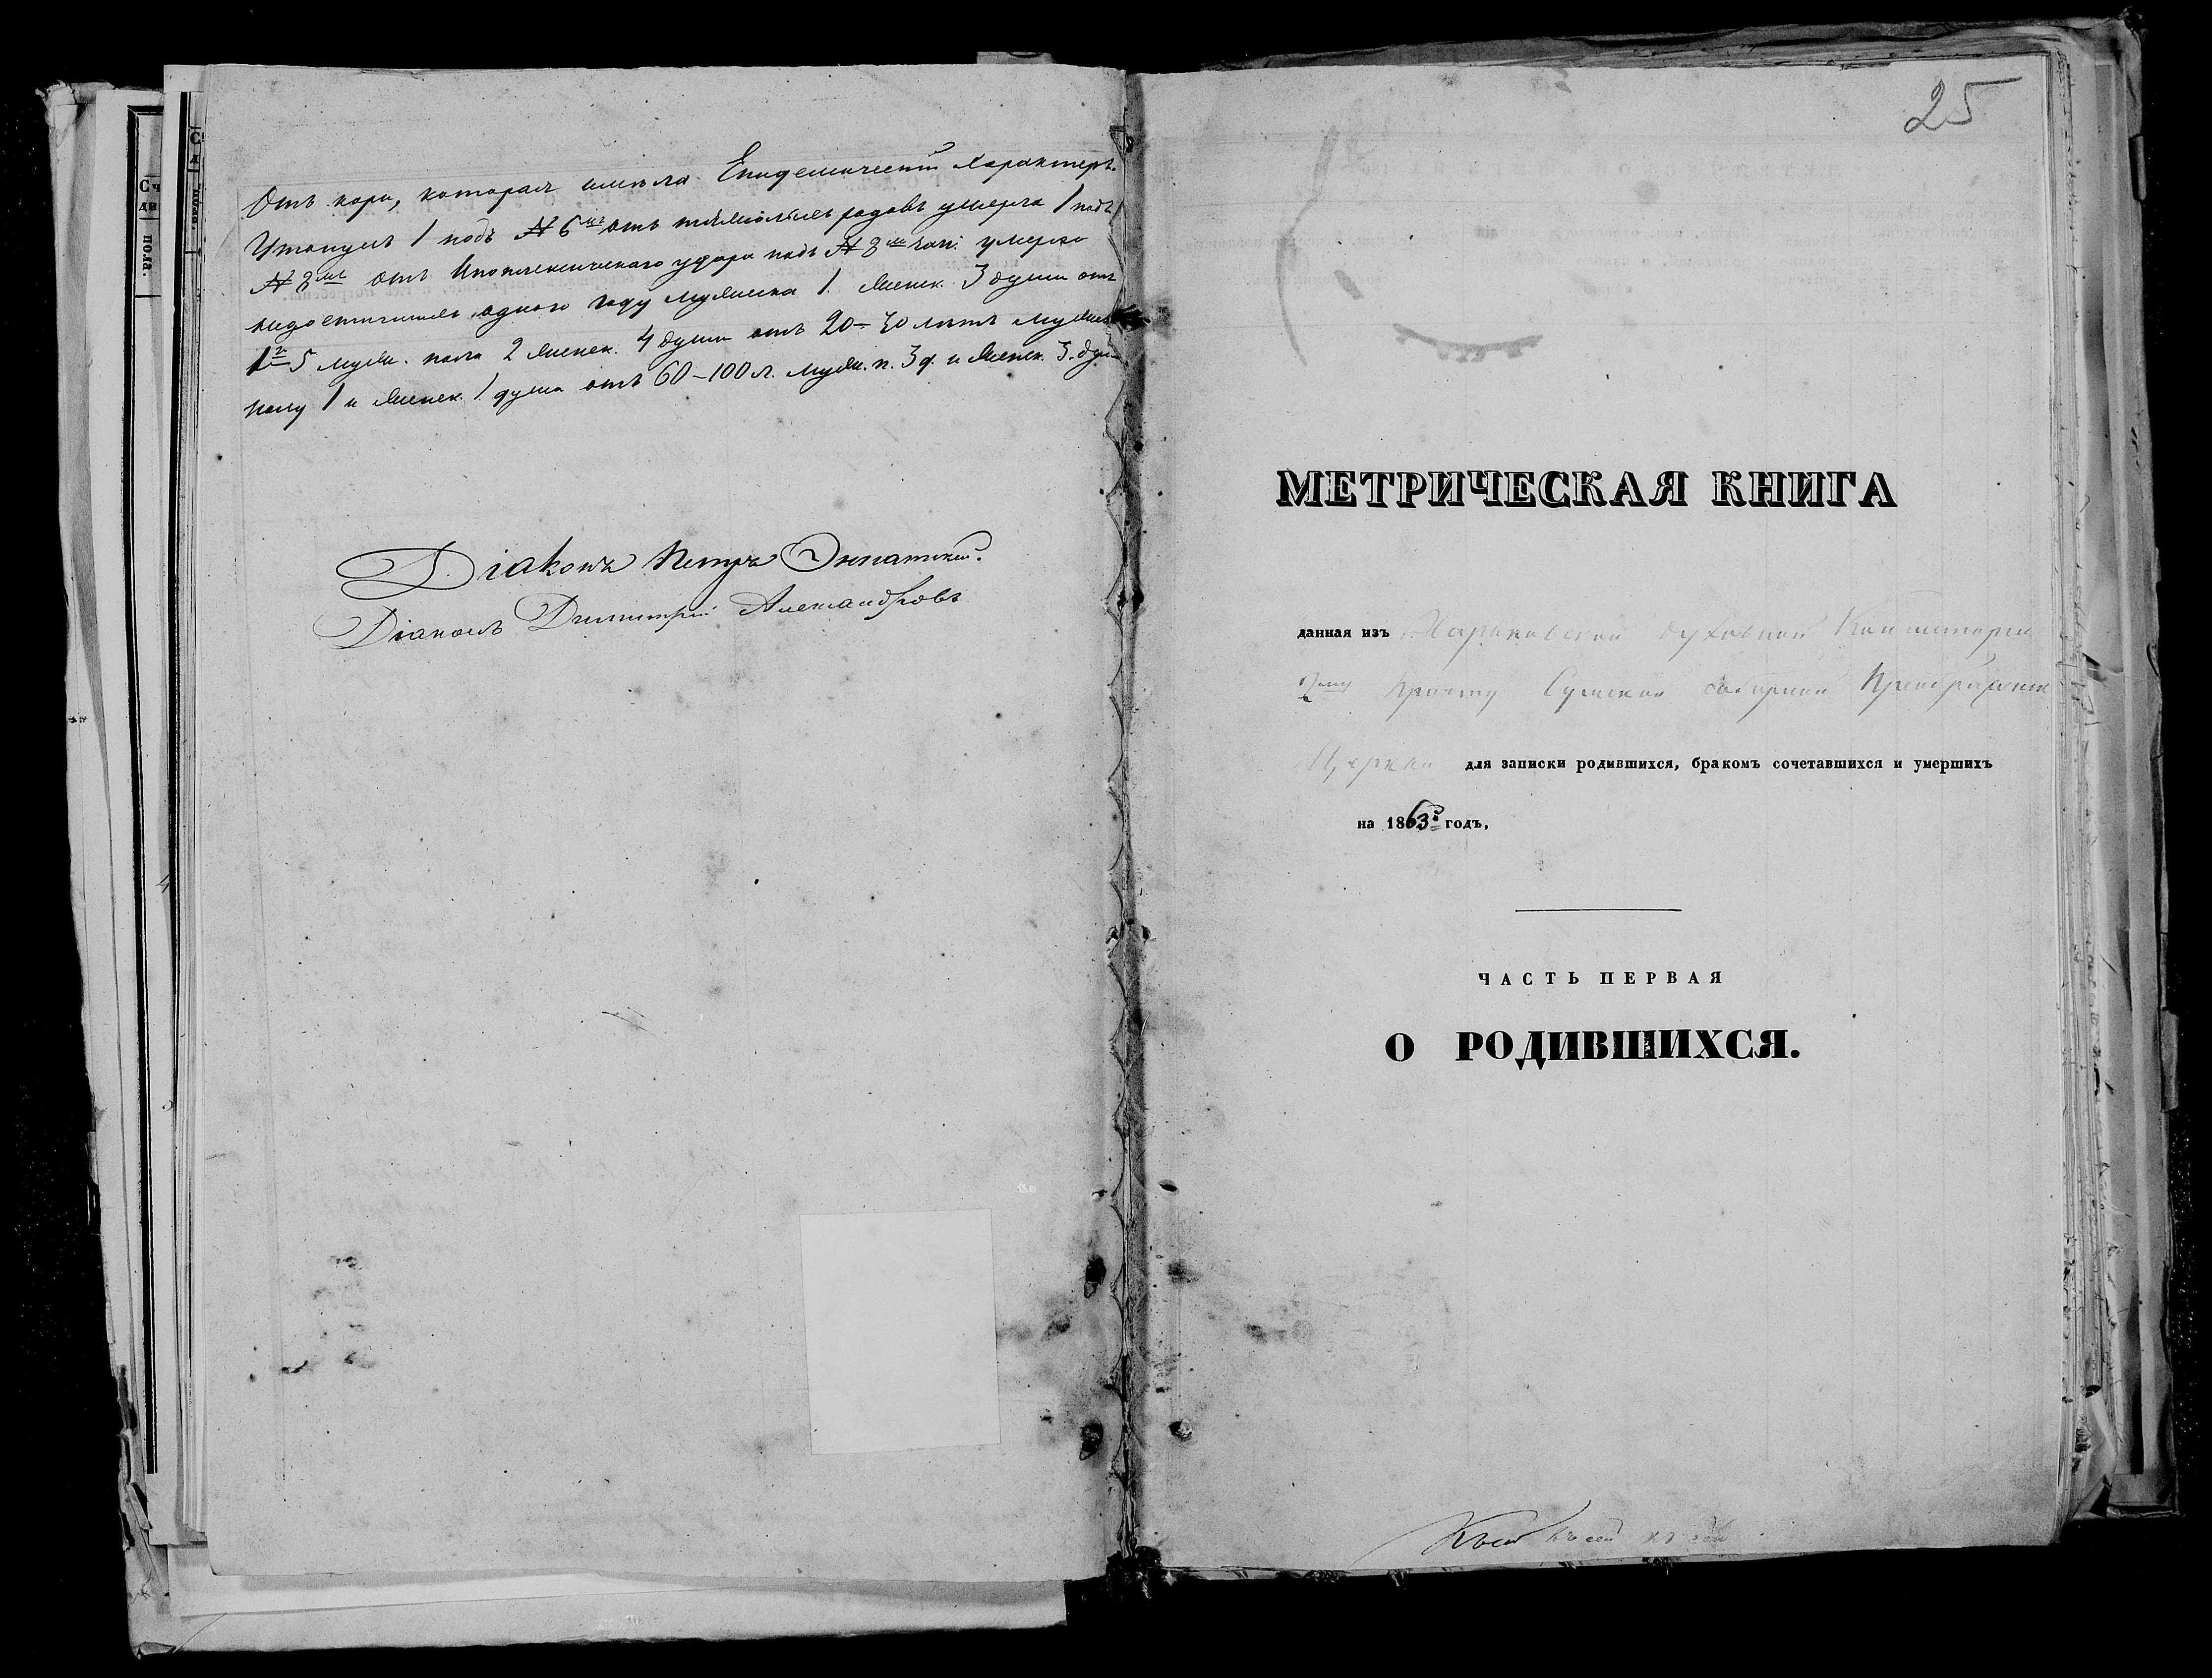 Отъ кори, которая имѣла Епидемическій Характеръ.
Утонулъ 1 подъ № 6мъ отъ тяжолыхъ родовъ умерла 1 подъ
№ 8мъ отъ Апоплексическаго удара подъ № 8мъ умерло
недостигшихъ одного году мужеска 1. женск. 3 души отъ
1го 5 муж. пола 2 женск. 4 души отъ 20–30 лѣтъ мужес
полу 1 и женск. 1 душа отъ 60–100 л. муж. п. 3 д. и женск. 3. душ
Діаконъ Петръ
Діаконъ Димитрій Александровъ
Сч
ди
пола.
25
МЕТРИЧЕСКАЯ КНИГА
данная изъ Харьковской Духовной Консисторіи
2му причту Сумской соборной Преображенск
Церкви для записки родившихся, бракомъ сочетавшихся и умершихъ
на 1863й годъ,
ЧАСТЬ ПЕРВАЯ
О РОДИВШИХСЯ.
Къ сей къ сей къ сей